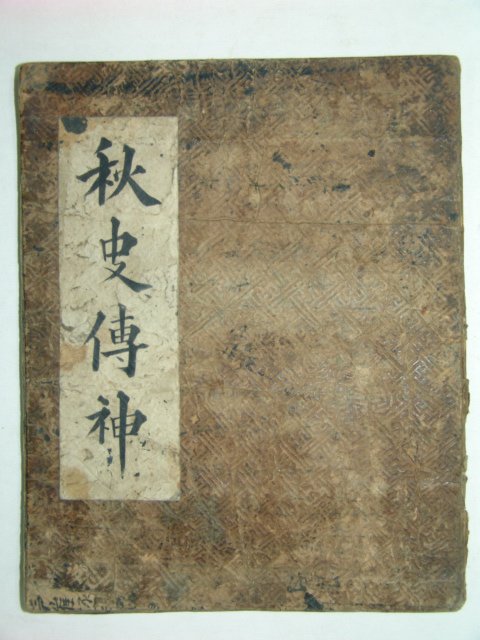 秋史傳神